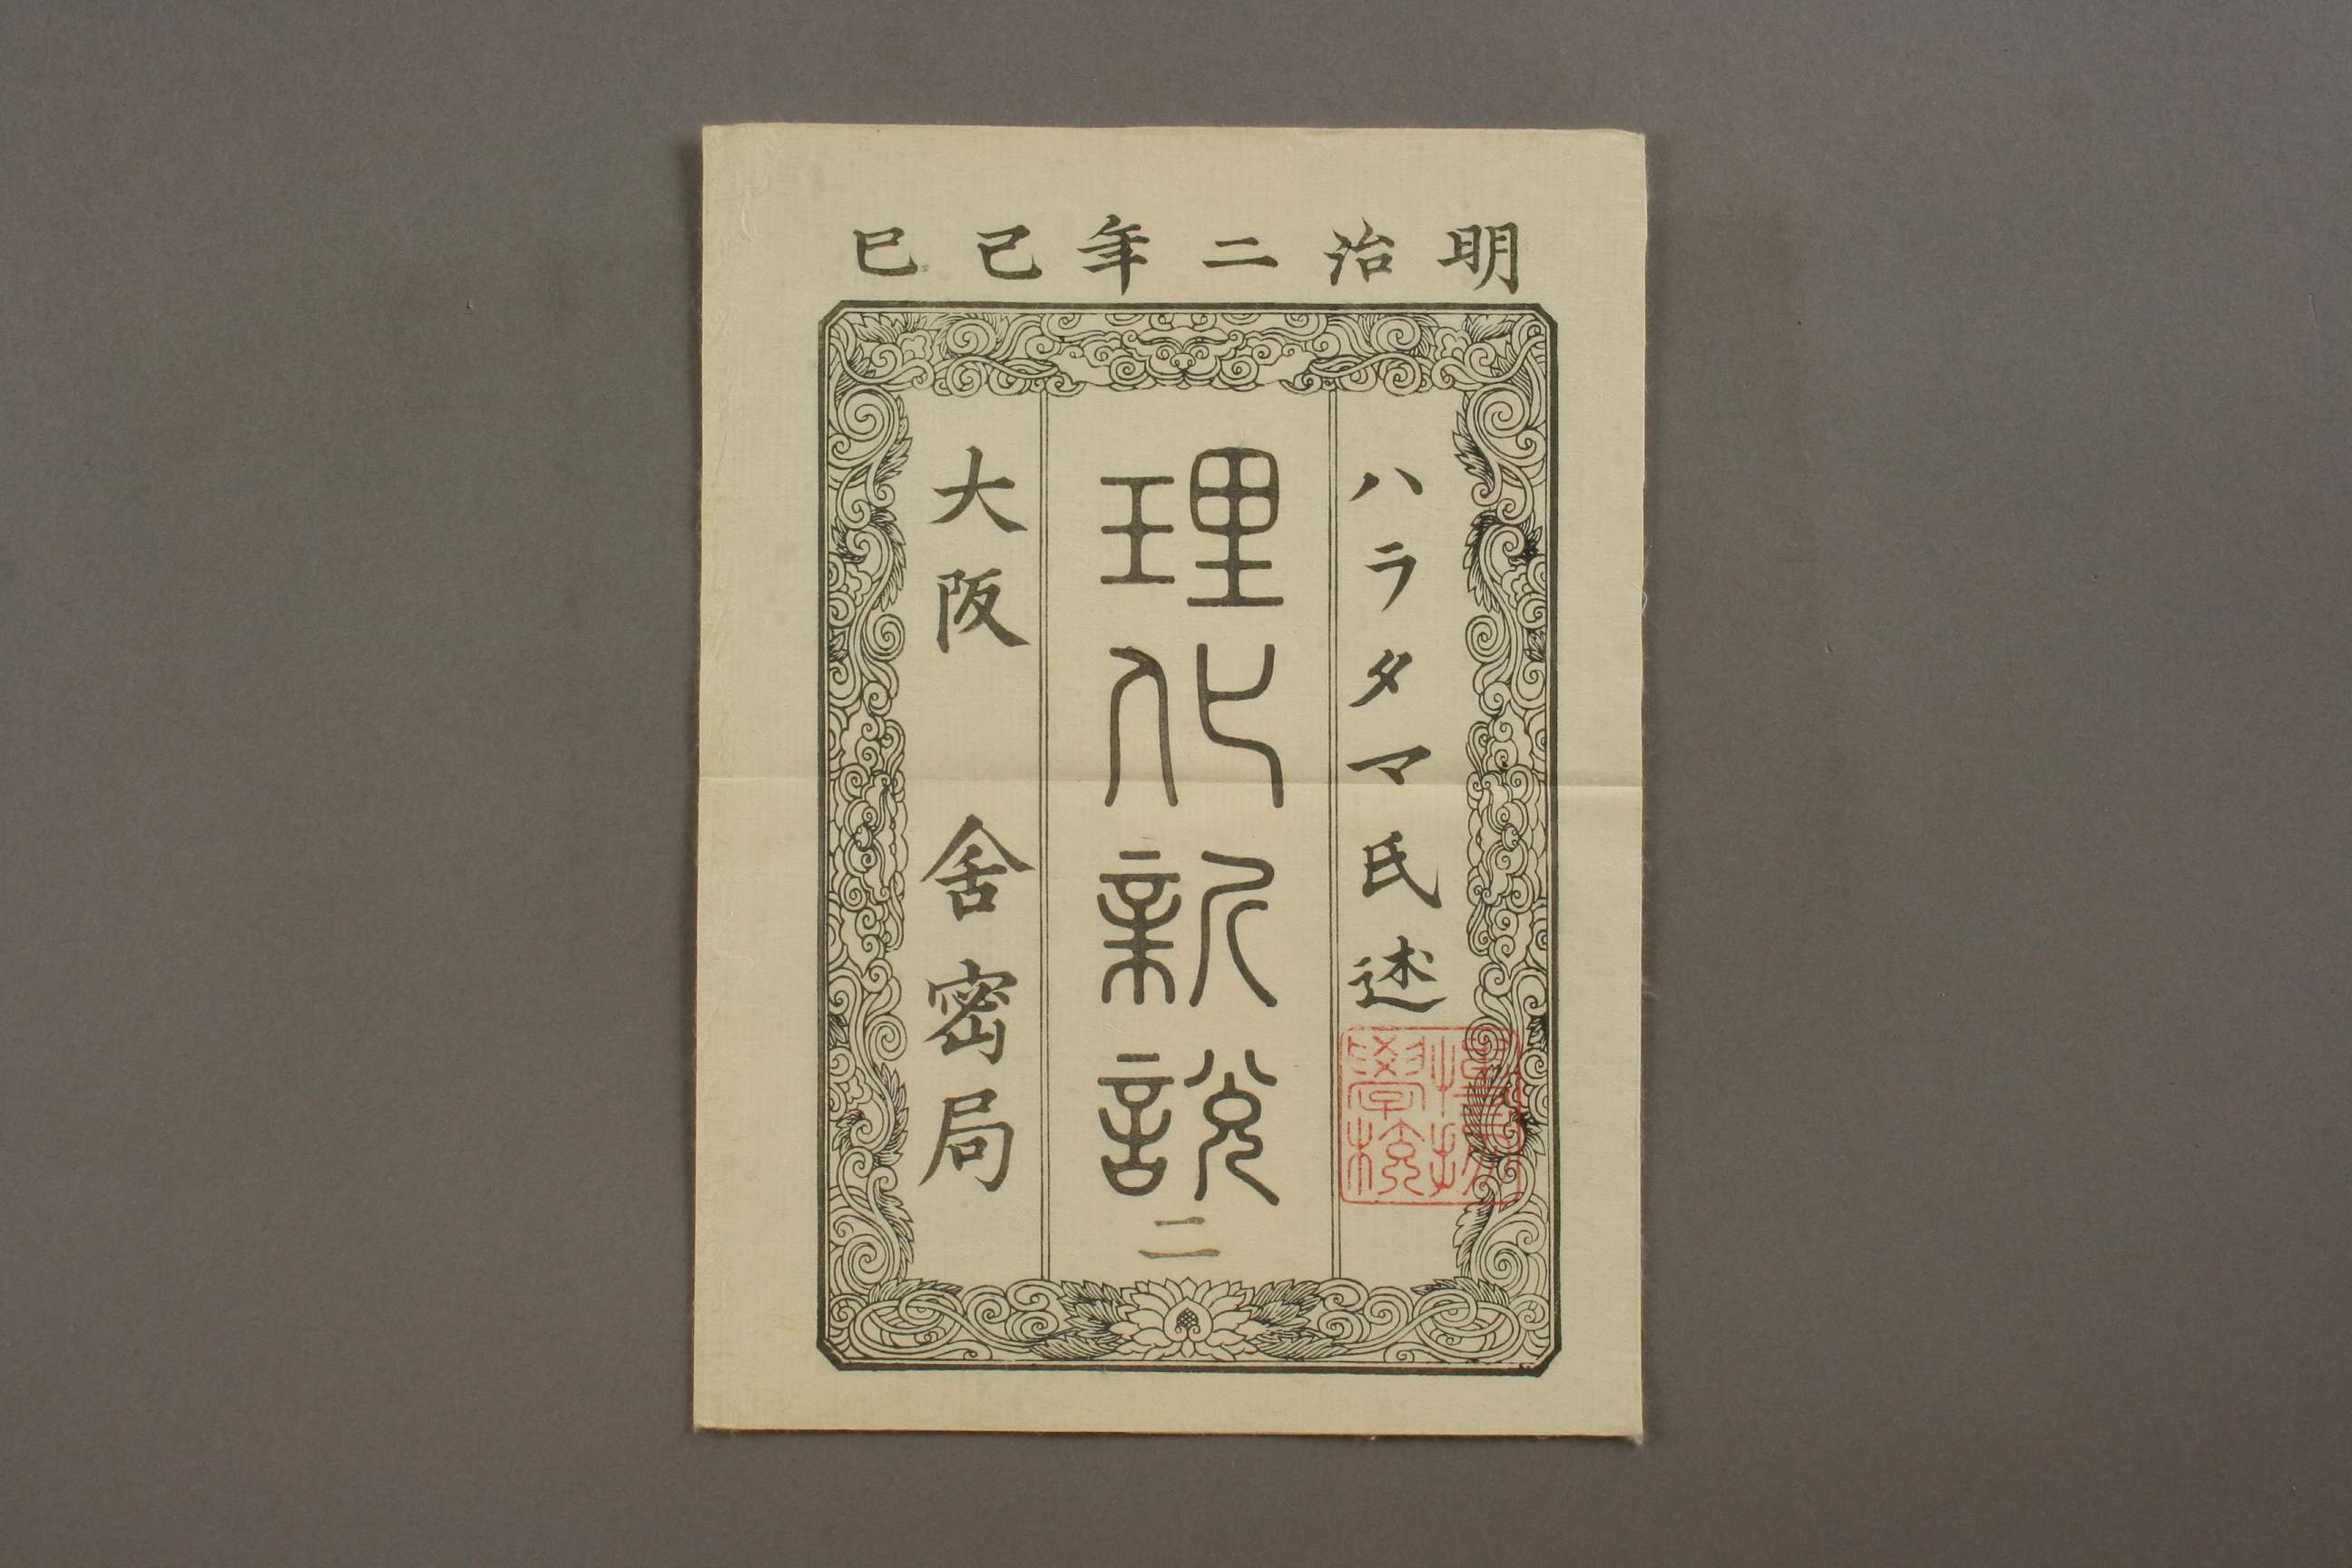 明治二年己巳
ハラタマ氏述
理化新説
二
大阪 舎密局